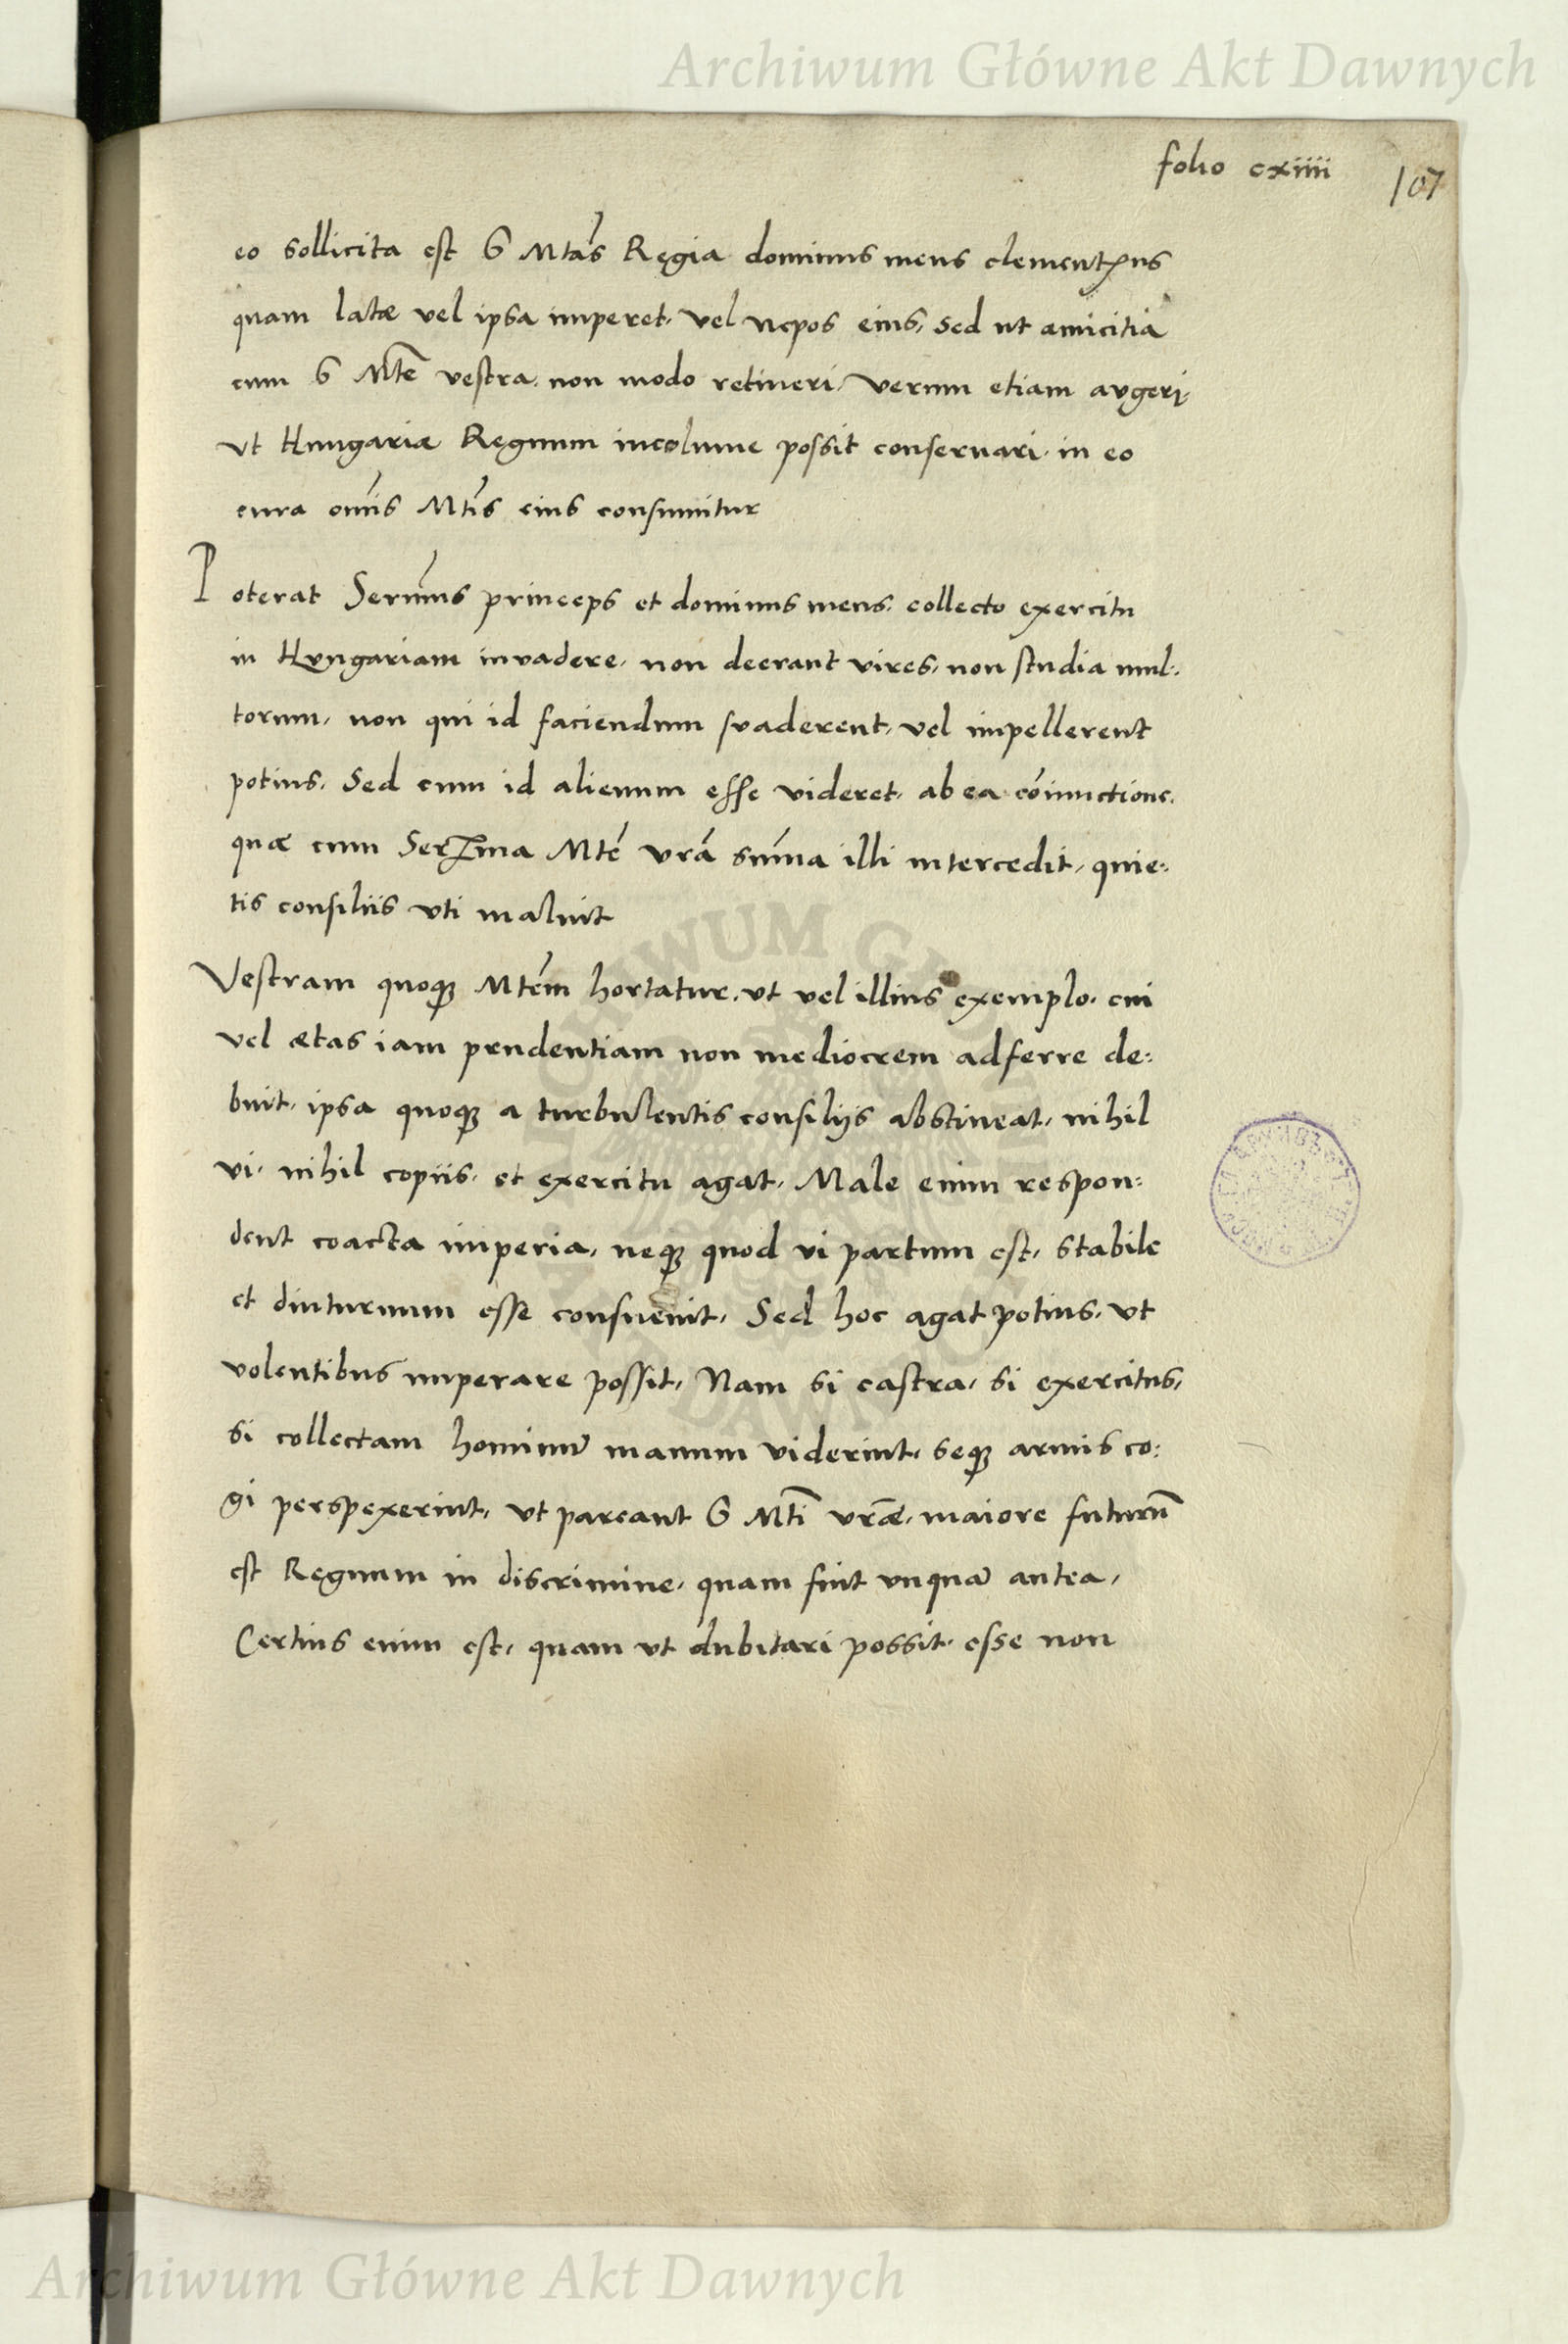 Archiwum Główne Akt Dawnych
folio cxiiii 107
eo sollicita est S Mtas Regia dominus meus clementxus
quam late vel ipsa imperet, vel nepos eius, sed ut amicitia
cum S Mte vestra, non modo retineri, verum etiam augeri,
ut Hungariæ Regnum incolume possit conservari, in eo
cura omis Mtis eius consumitur
Poterat Sermus princeps et dominus meus, collecto exercitu
in Hungariam invadere, non deerant vires, non studia mul:
torum, non qui id faciendum suaderent, vel impellerent
potius, Sed cum id alienum esse videret, ab ea cōiunctione,
quæ cum Serma Mte vrā suma illi intercedit, quie:
tis consiliis uti maluit
Vestram quoqꝫ Mtem hortatur, ut vel illius exemplo, cui
vel ætas iam prudentiam non mediocrem adferre de:
buit, ipsa quoqꝫ a turbulentis consilijs abstineat, nihil
vi, nihil copiis, et exercitu agat, Male enim respon:
dent coacta imperia, neqꝫ quod vi partum est, stabile
et diuturnum esse consuevit, Sed hoc agat potius, ut
volentibus imperare possit, Nam si castra, si exercitus,
si collectam hominū manum viderint, seqꝫ armis co:
gi perspexerint, ut pareant S Mti vræ, maiore futurū
est Regnum in discrimine, quam fuit unquā antea,
Certius enim est, quam ut dubitari possit, esse non
Archiwum Główne Akt Dawnych